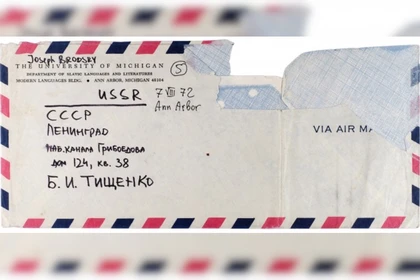 Joseph BRODSKY
THE UNIVERSITY OF MICHIGAN
DEPARTMENT OF SLAVIC LANGUAGES AND LITERATURES
MODERN LANGUAGES BLDG. • ANN ARBOR, MICHIGAN 48104
5
USSR
7 VIII 72
Ann Arbor
СССР
ЛЕНИНГРАД
НАБ. КАНАЛА ГРИБОЕДОВА
ДОМ 124, КВ. 38
Б. И. ТИЩЕНКО
VIA AIR MA